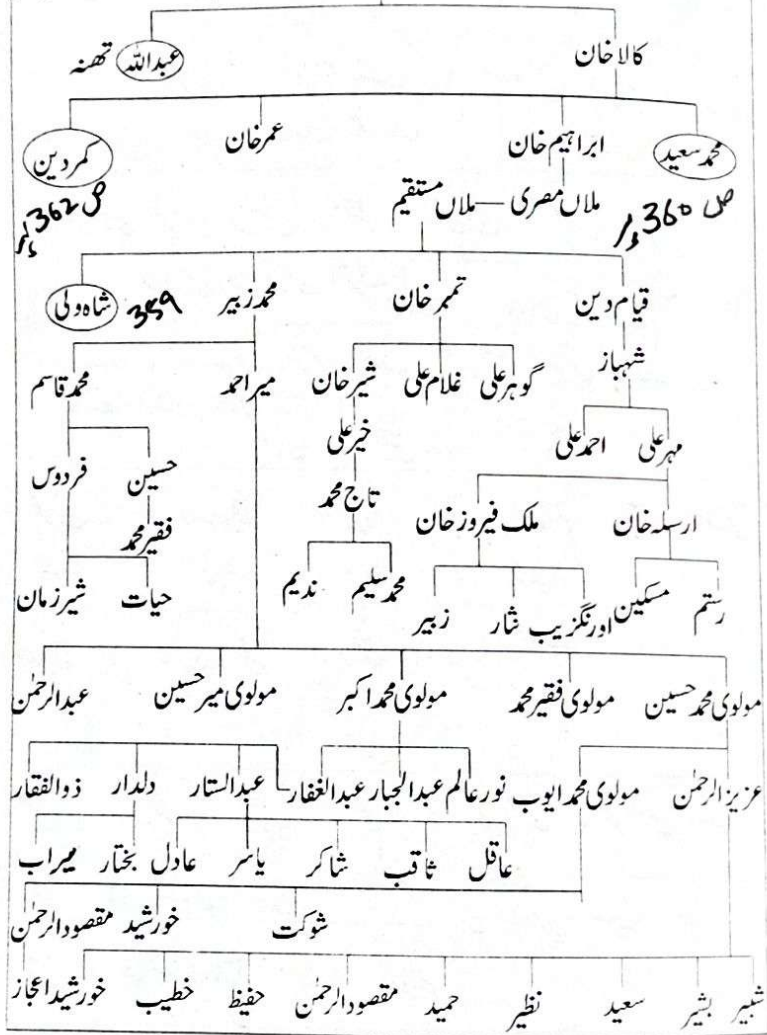 کالا خان عبداللہ تھنہ
محمد سعید ابراہیم خان عمر خان کمر دین
ص 360 پر ملاں مصری ملاں مستقیم ص 362 پر
قیام دین تمبر خان محمد زبیر 359 شاہ ولی
شہباز
گوہر علی غلام علی شیر خان میر احمد محمد قاسم
مہر علی احمد علی خیر علی حسین فردوس
ارسلہ خان ملک فیروز خان تاج محمد فقیر محمد
رستم مسکین اورنگزیب نثار زبیر محمد سلیم ندیم حیات شیر زمان
مولوی محمد حسین مولوی فقیر محمد مولوی محمد اکبر مولوی میر حسین عبدالرحمٰن
عزیز الرحمٰن مولوی محمد ایوب نور عالم عبدالجبار عبدالغفار عبدالستار دلدار ذوالفقار
عاقل ثاقب شاکر یاسر عادل بختار میراب
شوکت خورشید مقصود الرحمٰن
شبیر بشیر سعید نظیر حمید مقصود الرحمٰن حفیظ خطیب خورشید اعجاز